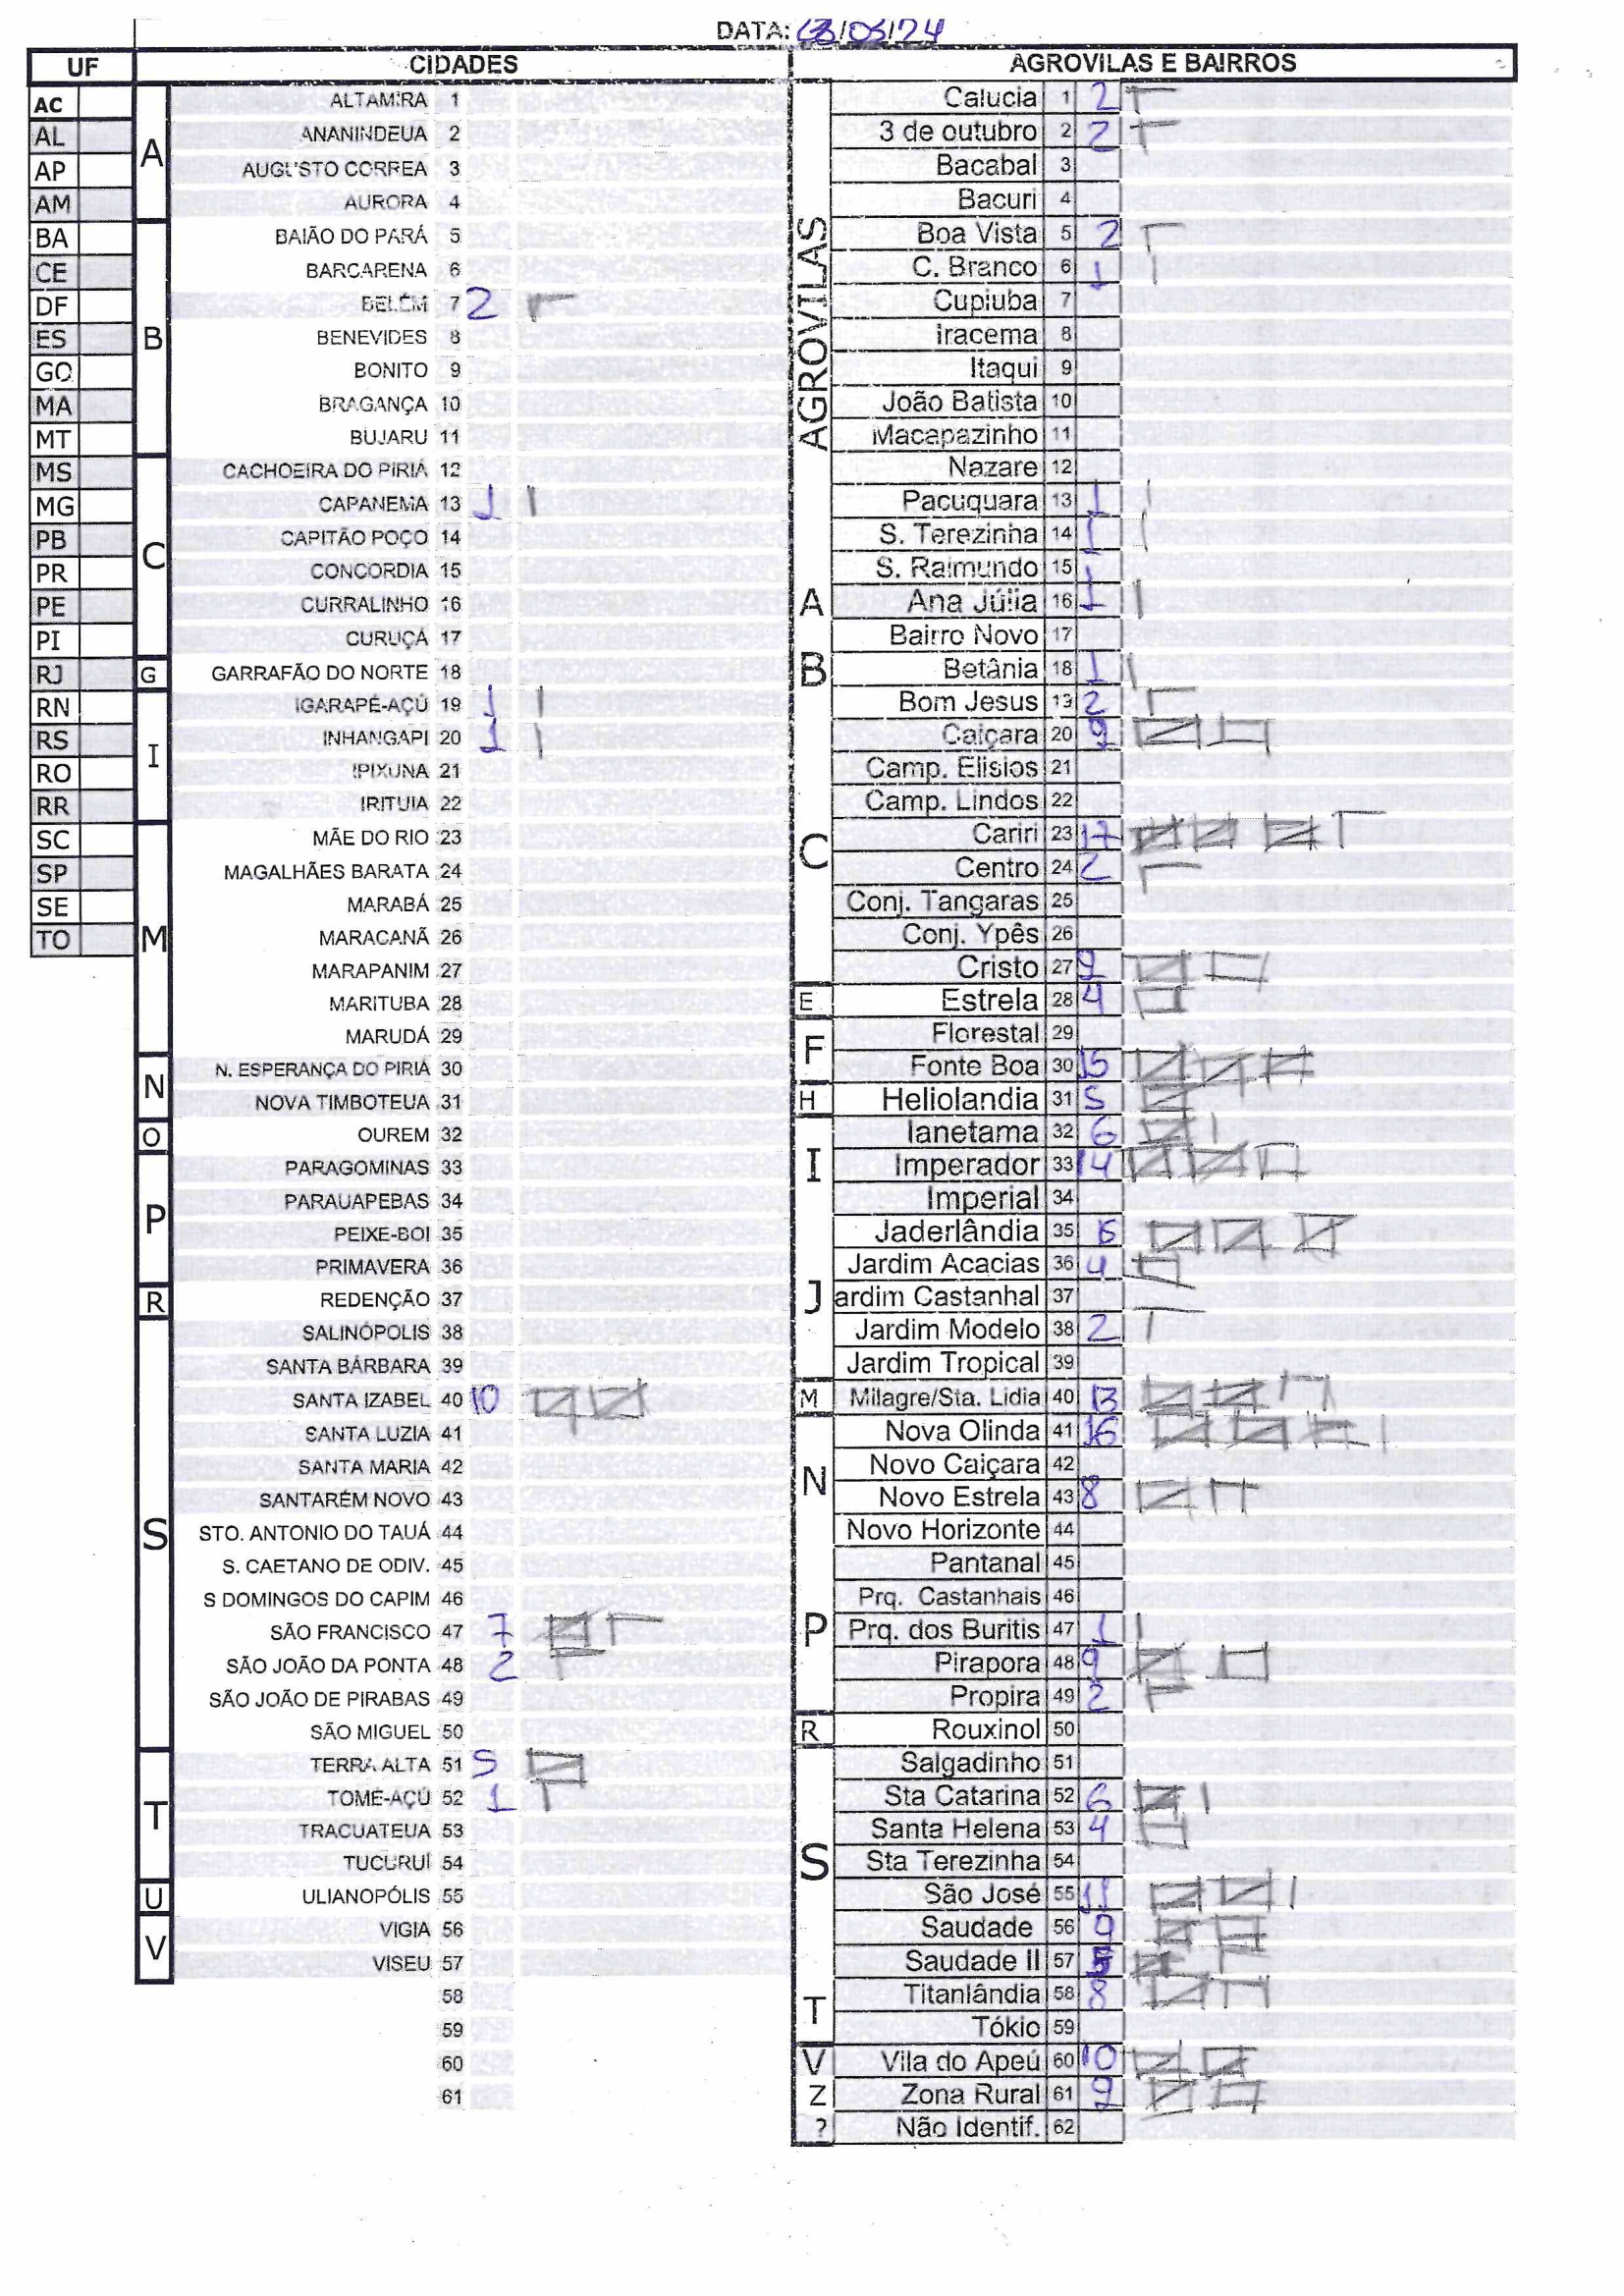 DATA: 03/05/24
UF CIDADES AGROVILAS E BAIRROS
AC
AL
AP
AM
BA
CE
DF
ES
GO
MA
MT
MS
MG
PB
PR
PE
PI
RJ
RN
RS
RO
RR
SC
SP
SE
TO
A
ALTAMIRA 1
ANANINDEUA 2
AUGUSTO CORREA 3
AURORA 4
B
BAIÃO DO PARÁ 5
BARCARENA 6
BELÉM 7 2
BENEVIDES 8
BONITO 9
BRAGANÇA 10
BUJARU 11
C
CACHOEIRA DO PIRIÁ 12
CAPANEMA 13 1
CAPITÃO POÇO 14
CONCORDIA 15
CURRALINHO 16
CURUÇÁ 17
G
GARRAFÃO DO NORTE 18
I
IGARAPÉ-AÇÚ 19 1
INHANGAPI 20 1
IPIXUNA 21
IRITUIA 22
M
MÃE DO RIO 23
MAGALHÃES BARATA 24
MARABÁ 25
MARACANÃ 26
MARAPANIM 27
MARITUBA 28
MARUDÁ 29
N
N. ESPERANÇA DO PIRIÁ 30
NOVA TIMBOTEUA 31
O
OUREM 32
P
PARAGOMINAS 33
PARAUAPEBAS 34
PEIXE-BOI 35
PRIMAVERA 36
R
REDENÇÃO 37
S
SALINÓPOLIS 38
SANTA BÁRBARA 39
SANTA IZABEL 40 10
SANTA LUZIA 41
SANTA MARIA 42
SANTARÉM NOVO 43
STO. ANTONIO DO TAUÁ 44
S. CAETANO DE ODIV. 45
S DOMINGOS DO CAPIM 46
SÃO FRANCISCO 47 7
SÃO JOÃO DA PONTA 48 2
SÃO JOÃO DE PIRABAS 49
SÃO MIGUEL 50
T
TERRA ALTA 51 5
TOMÉ-AÇÚ 52 1
TRACUATEUA 53
TUCURUÍ 54
U
ULIANOPÓLIS 55
V
VIGIA 56
VISEU 57
58
59
60
61
AGROVILAS
Calucia 1 2
3 de outubro 2 2
Bacabal 3
Bacuri 4
Boa Vista 5 2
C. Branco 6 1
Cupiuba 7
Iracema 8
Itaqui 9
João Batista 10
Macapazinho 11
Nazare 12
Pacuquara 13 1
S. Terezinha 14 1
S. Raimundo 15
A
Ana Júlia 16 1
Bairro Novo 17
B
Betânia 18 1
Bom Jesus 19 2
Caiçara 20 9
Camp. Elisios 21
Camp. Lindos 22
C
Cariri 23 17
Centro 24 2
Conj. Tangaras 25
Conj. Ypês 26
Cristo 27 9
E
Estrela 28 4
F
Florestal 29
Fonte Boa 30 15
H
Heliolandia 31 5
I
Ianetama 32 6
Imperador 33 14
Imperial 34
Jaderlândia 35 15
Jardim Acacias 36 4
Jardim Castanhal 37
Jardim Modelo 38 2
Jardim Tropical 39
M
Milagre/Sta. Lidia 40 13
N
Nova Olinda 41 16
Novo Caiçara 42
Novo Estrela 43 8
Novo Horizonte 44
P
Pantanal 45
Prq. Castanhais 46
Prq. dos Buritis 47 1
Pirapora 48 9
Propira 49 2
R
Rouxinol 50
S
Salgadinho 51
Sta Catarina 52 6
Santa Helena 53 4
Sta Terezinha 54
São José 55 11
Saudade 56 9
Saudade II 57
T
Titanlândia 58 8
Tókio 59
V
Vila do Apeú 60 10
Z
Zona Rural 61 9
?
Não Identif. 62